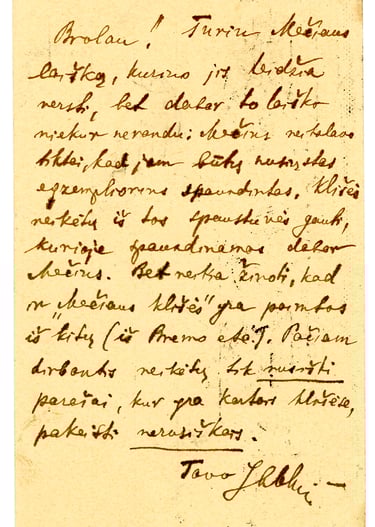 Brolau! Turiu Mečiaus
laišką, kuriuo jis leidžia
versti, bet dabar to laiško
niekur nerandu. Mečius reikalavo
tiktai, kad jam būtų nusiųstas
egzempliorius spausdintas. Klišės
reikėtų iš tos spaustuvės gauti,
kurioje spausdinamas dabar
Mečius. Bet reikia žinoti, kad
ir "Mečiaus klišės" yra paimtos
iš kitų (iš Bremo etc.). Pačiam
dirbantis reikėtų tik
parašai, kur yra kartais klišėse,
pakeisti nerusiškais.
Tavo